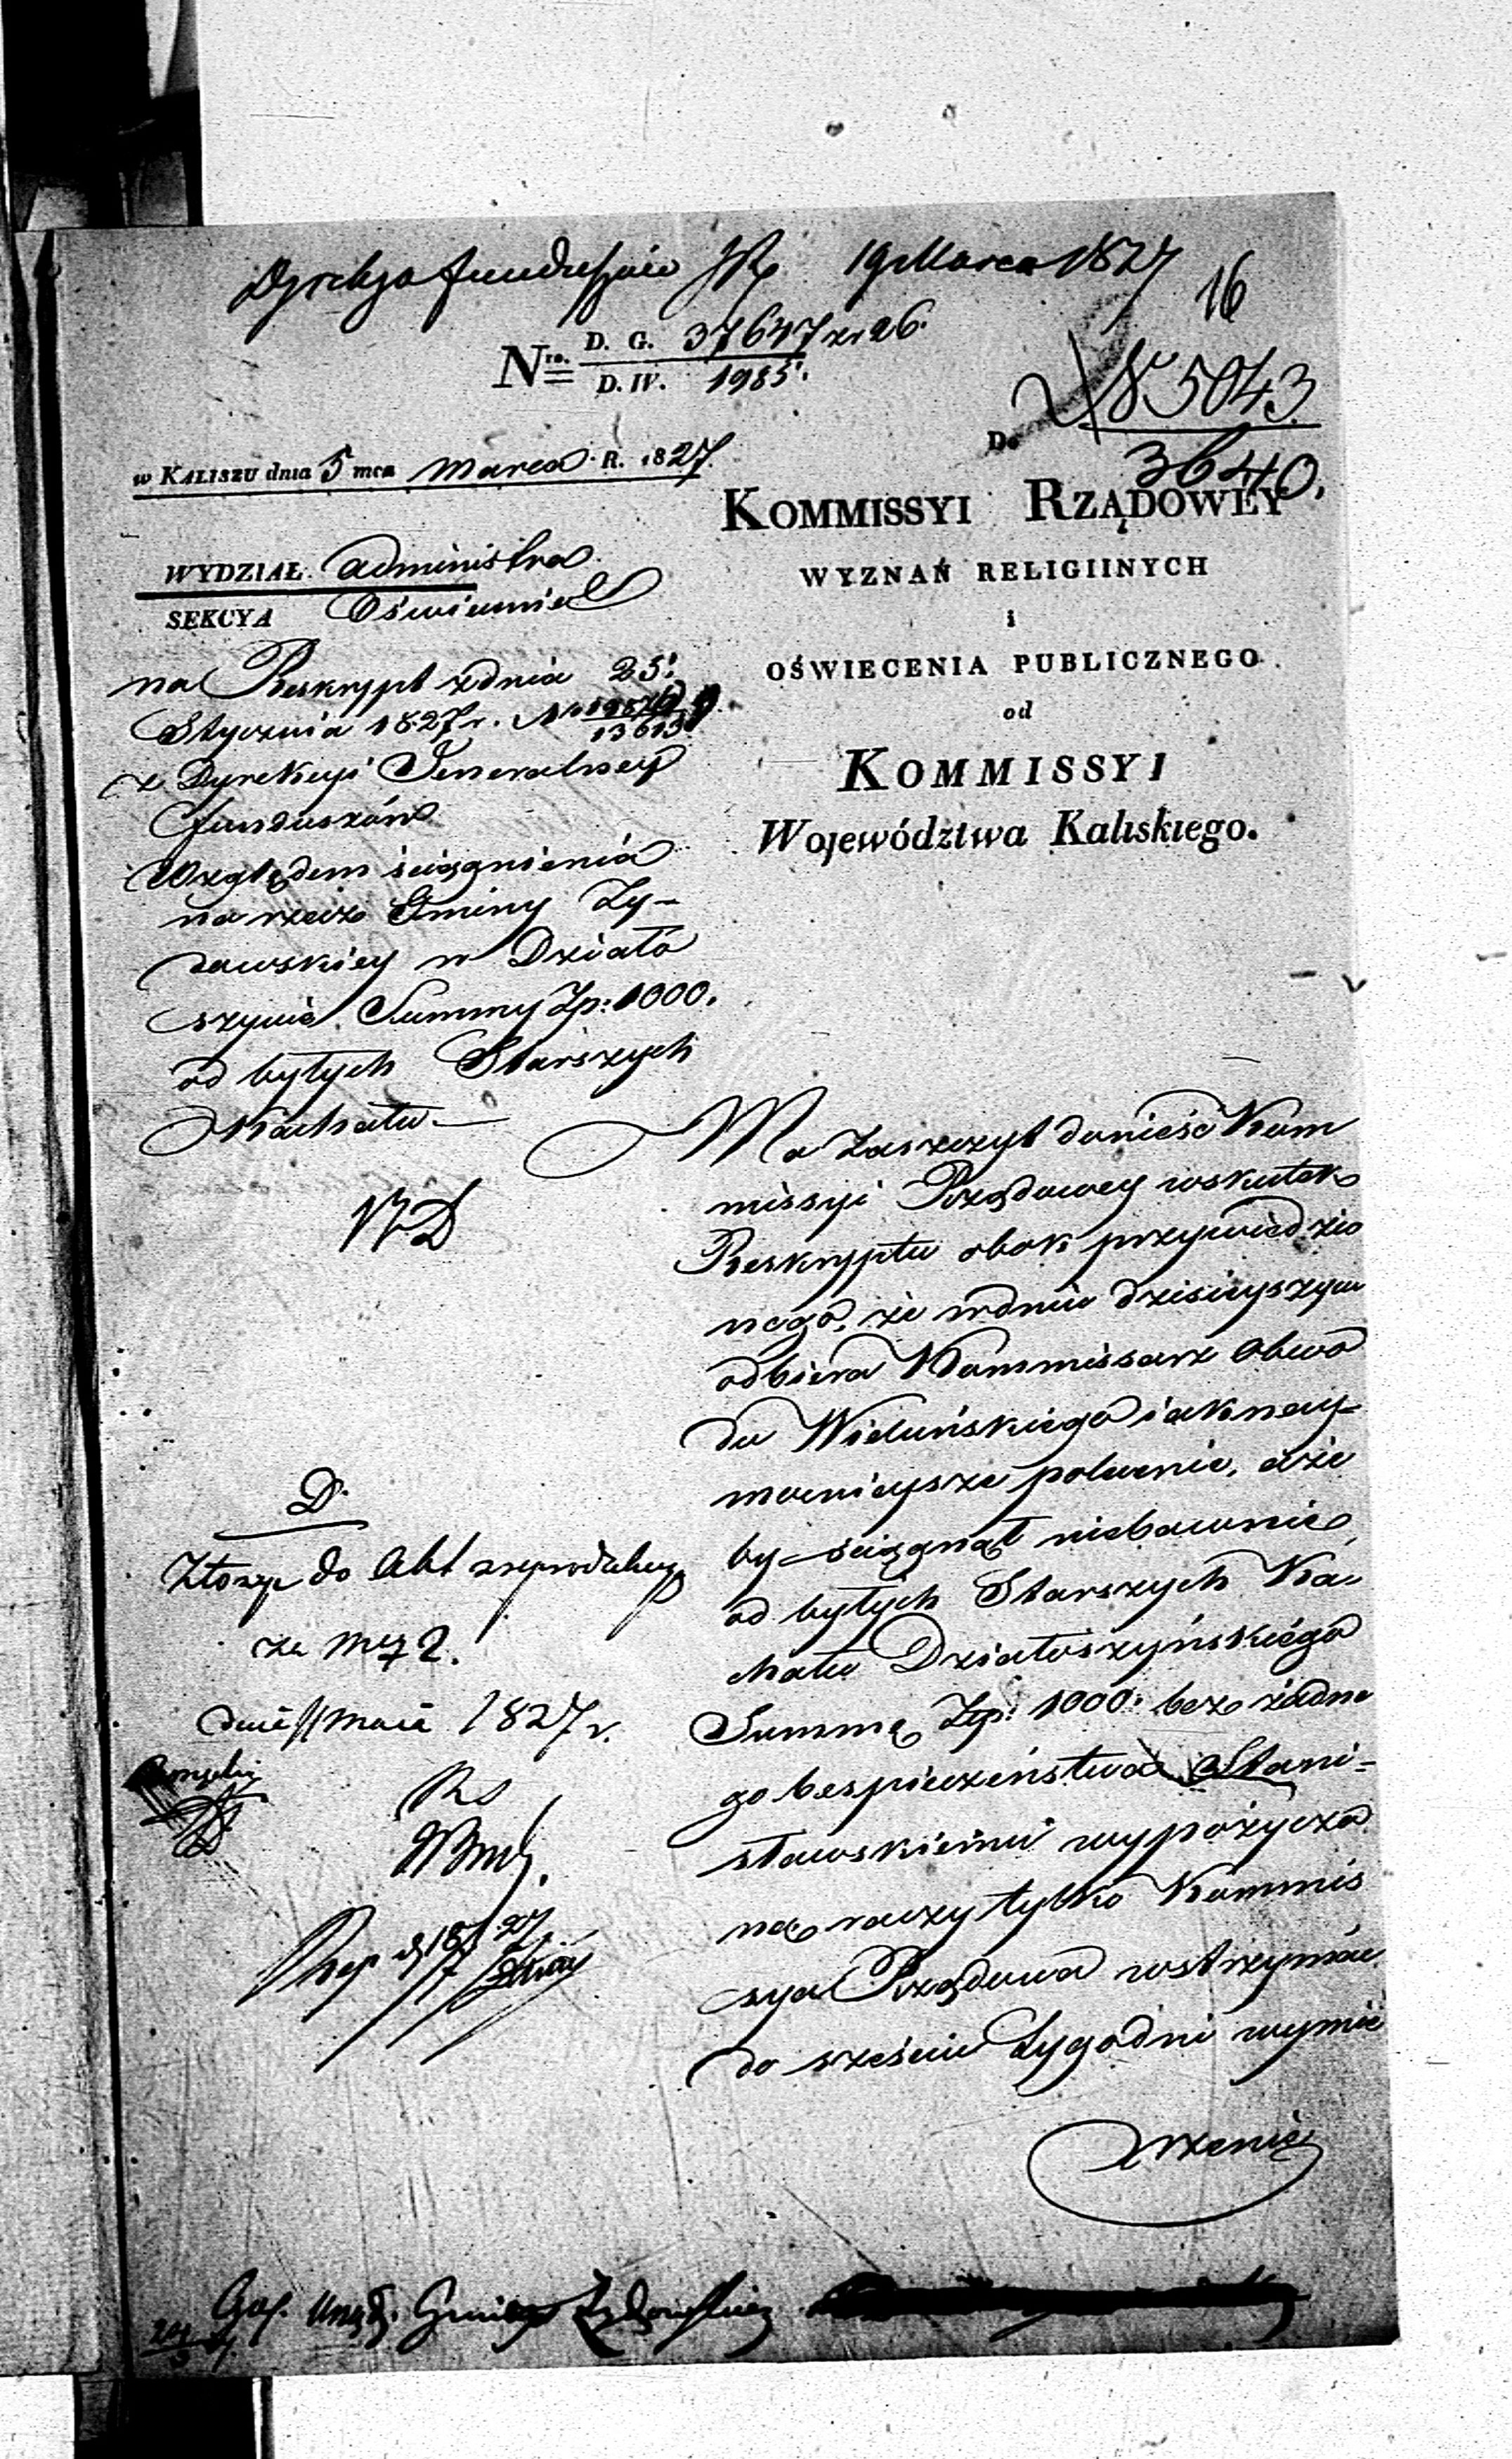 Dyrekcya funduszów 19 Marca 1827
16
Nro. D. G. 37647 zr 26.
D. IV. 1985.
N 5043
3640.
Do
w KALISZU dnia 5 mca Marca R. 1827.
KOMMISSYI RZĄDOWEY
WYZNAŃ RELIGIINYCH
i
OŚWIECENIA PUBLICZNEGO
od
KOMMISSYI
Województwa Kaliskiego.
WYDZIAŁ administra
SEKCYA Oświecenie
na Reskrypt zdnia 25.
Stycznia 1827 r. No
13613
z Dyrekcyi Jeneralney
funduszów
Względem ściągnienia
na rzecz Gminy Ży-
dowskiey w Działo
szynie Summy Zp: 1000.
od byłych Starszych
Kachału.
Ma zaszczyt donieść Kom
missyi Rządowey wskutek
Reskryptu obok przywiedzio
nego, że wdniu dzisieyszym
odbiera Kommissarz Obwo
du Wieluńskiego iaknay-
mocnieysze polecenie, aże
by ściągnął niebawnie
od byłych Starszych Ka-
chału Działoszyńskiego
Summę Zp: 1000: bez żadne
go bespieczeństwa Stani-
sławskiemu wypożyczo
ną, raczy tylko Kommis
sya Rządowa wstrzymać
do sześciu tygodni wymie
rzenie
D.
Złożyć do Akt zreprodukcyą
za mcy 2.
dnia 11 maia 1827 r.
Gaf. Urzęd. Gminy Żydowskiey